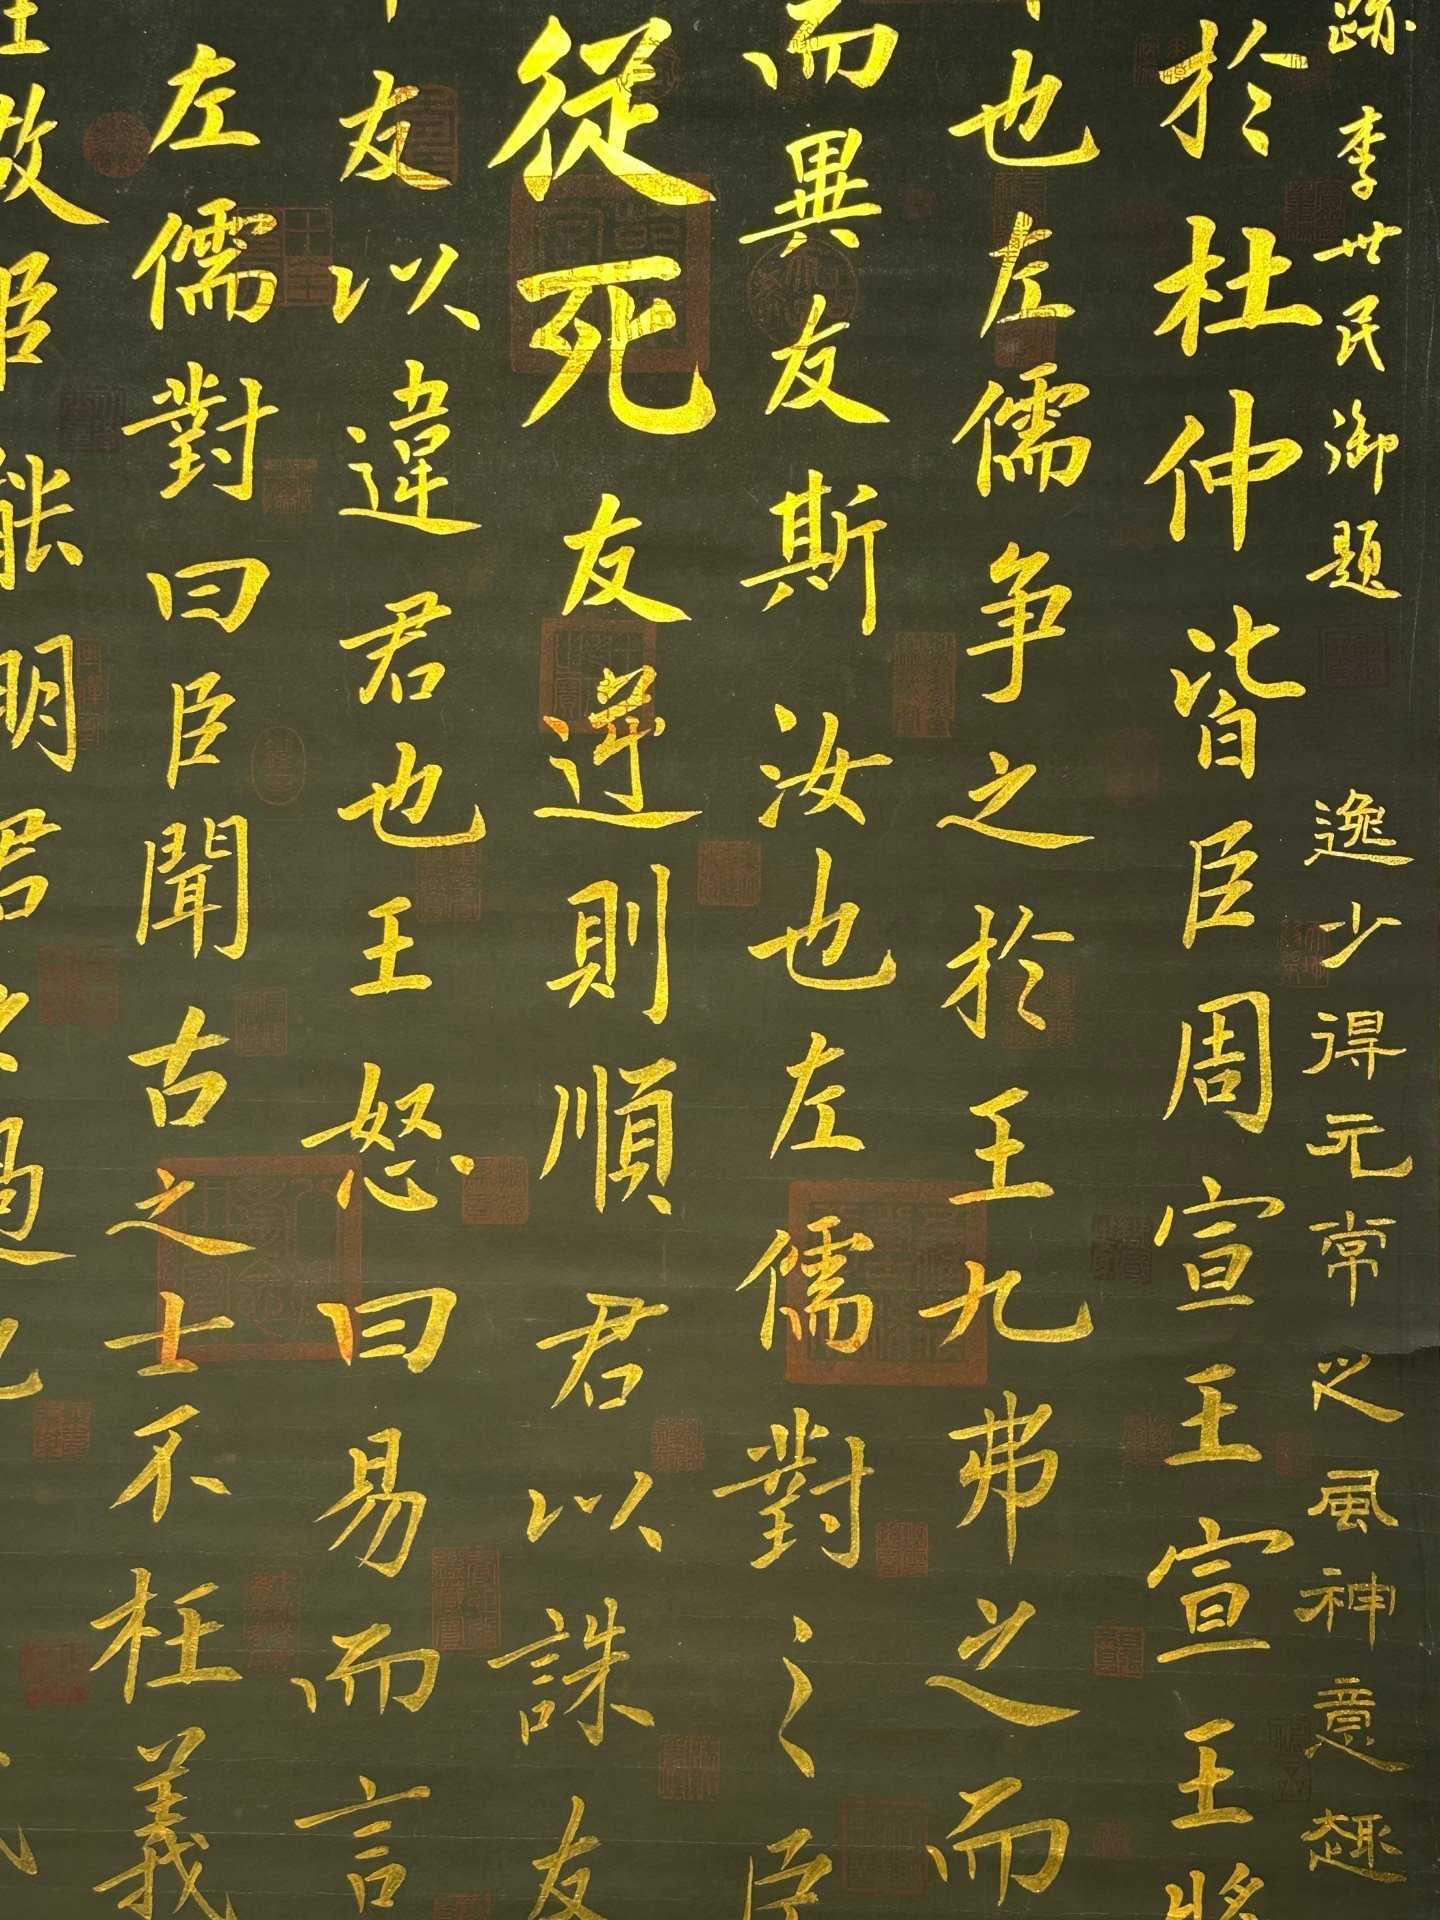 跡 李世民御題 逸少得元常之風神意趣
於杜仲皆臣周宣王宣王將
也左儒争之於王九弗之而
而異友斯汝也左儒對之臣
從死友逆則順君以誅友
友以違君也王怒曰易而言
左儒對曰臣聞古之士不枉義
故臣能明君之過